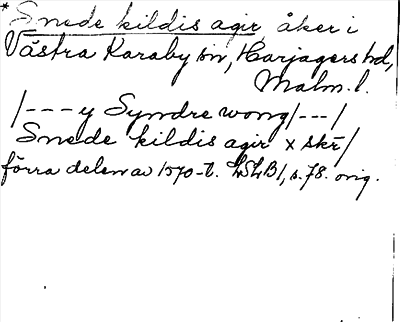 * Snede kildis agir, åker i
Västra Karaby sn, Harjagers hd,
Malm. l.
/---y Syndre wong/---/
Snede kildis agir x skr/
förra delen av 1570-t. LSLB1, s. 78. orig.